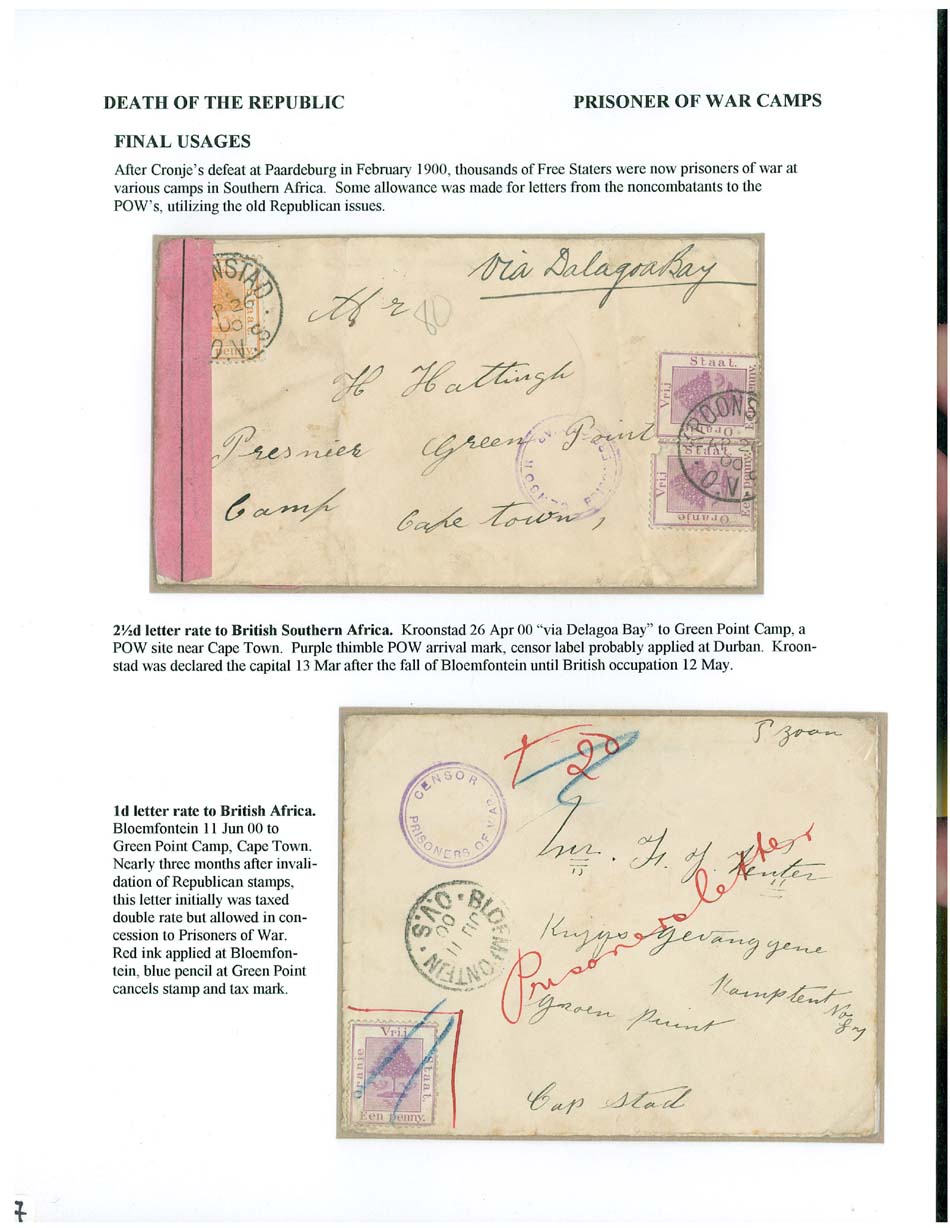 DEATH OF THE REPUBLIC
PRISONER OF WAR CAMPS
FINAL USAGES
After Cronje's defeat at Paardeburg in February 1900, thousands of Free Staters were now prisoners of war at
various camps in Southern Africa. Some allowance was made for letters from the noncombatants to the
POW's, utilizing the old Republican issues.
via Dalagoa Bay
NSTAD
Staat.
penny
Mr
80
H Hattingh
Presnier Green Point
Camp Cape town,
Staat.
Vrij
Een penny.
KROONS
Staat.
Vrij
Oranje
Een penny.
CENSOR
2½d letter rate to British Southern Africa. Kroonstad 26 Apr 00 “via Delagoa Bay” to Green Point Camp, a
POW site near Cape Town. Purple thimble POW arrival mark, censor label probably applied at Durban. Kroon-
stad was declared the capital 13 Mar after the fall of Bloemfontein until British occupation 12 May.
1d letter rate to British Africa.
Bloemfontein 11 Jun 00 to
Green Point Camp, Cape Town.
Nearly three months after invali-
dation of Republican stamps,
this letter initially was taxed
double rate but allowed in con-
cession to Prisoners of War.
Red ink applied at Bloemfon-
tein, blue pencil at Green Point
cancels stamp and tax mark.
T 20
CENSOR
PRISONERS OF WAR
BLOEMFONTEIN O.V.S.
JU
11
00
Prisoners letter
Kamptent
Groen Punt
Cap Stad
Vrij
Oranje
Staat.
Een penny.
7